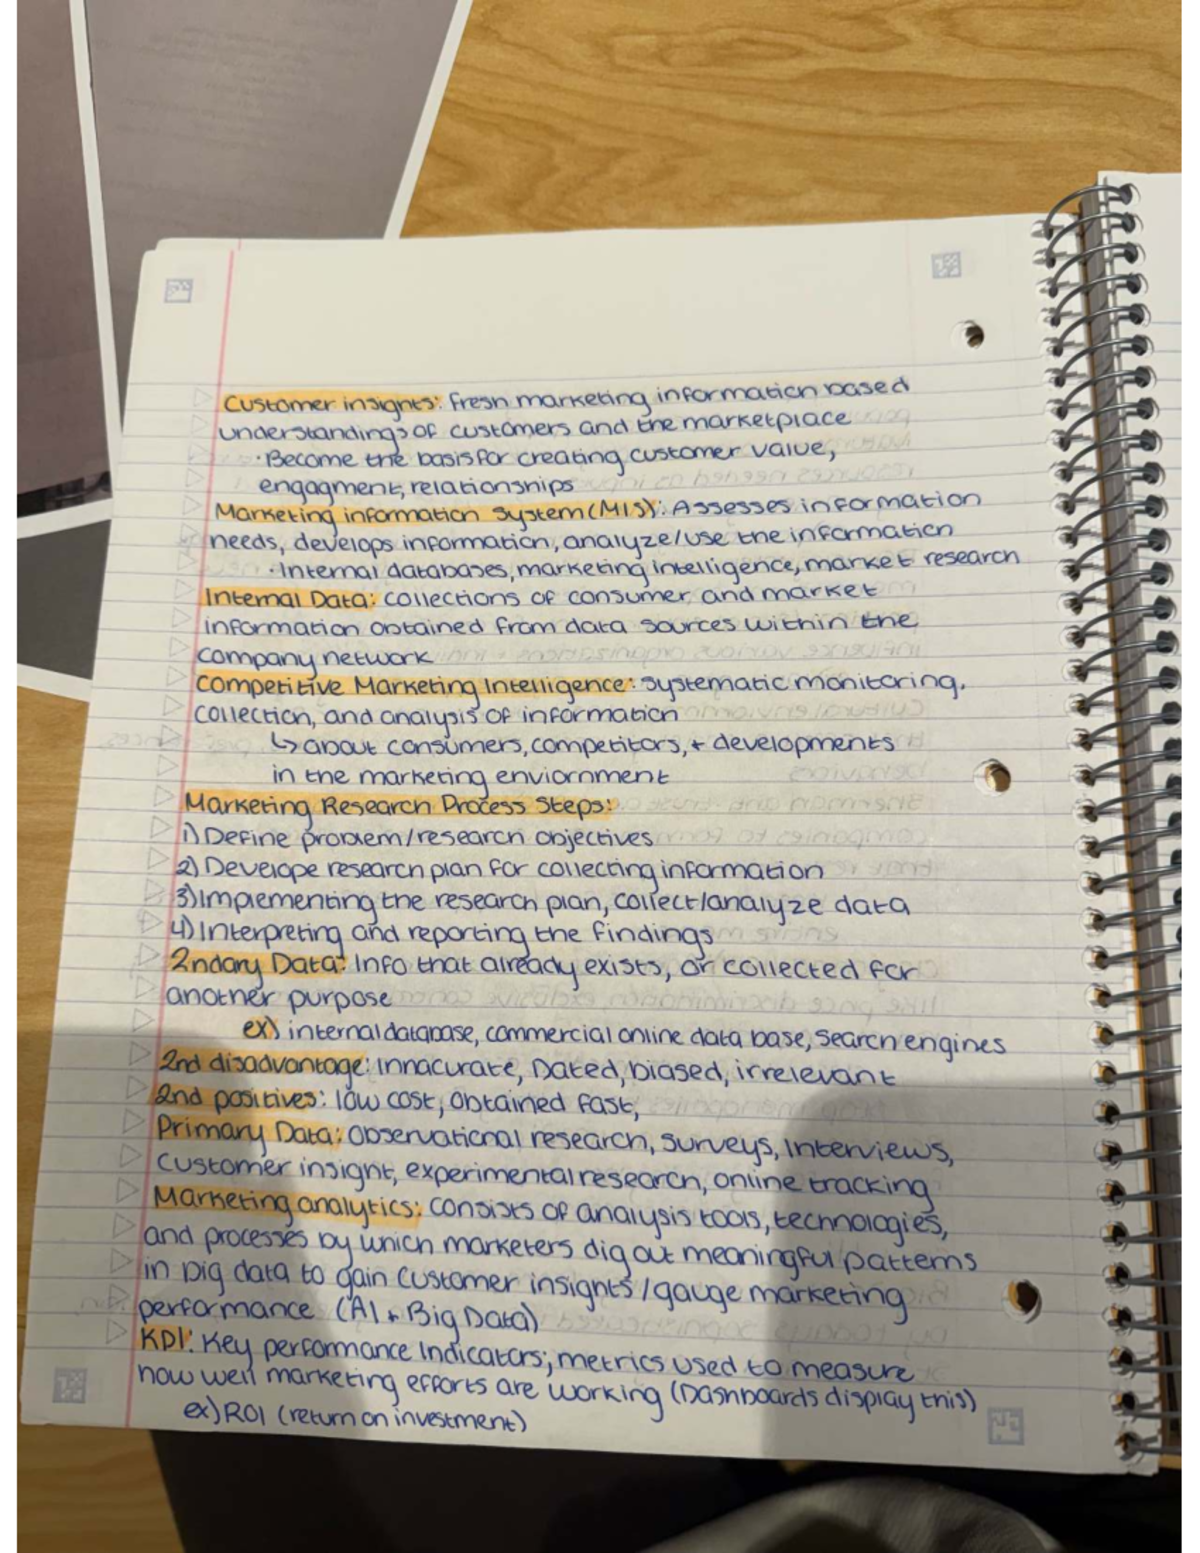 Customer insights: fresh marketing information based
understandings of customers and the marketplace
· Become the basis for creating customer value,
engagment, relationships
Marketing information System (MIS): Assesses information
needs, develops information, analyze/use the information
· Internal databases, marketing intelligence, market research
Internal Data: collections of consumer and market
information obtained from data sources within the
company network
Competitive Marketing Intelligence: systematic monitoring,
collection, and analysis of information
↳ about consumers, competitors, + developments
in the marketing enviornment
Marketing Research Process Steps:
1) Define problem/research objectives
2) Develope research plan for collecting information
3) Implementing the research plan, collect/analyze data
4) Interpreting and reporting the findings
2ndary Data: Info that already exists, or collected for
another purpose
ex) internal database, commercial online data base, search engines
2nd disadvantage: Innacurate, Dated, biased, irrelevant
2nd positives: low cost, obtained fast,
Primary Data: Observational research, surveys, Interviews,
Customer insight, experimental research, online tracking
Marketing analytics: Consists of analysis tools, technologies,
and processes by which marketers dig out meaningful patterns
in big data to gain customer insights/gauge marketing
performance (AI + Big Data)
KPI: Key performance Indicators; metrics used to measure
how well marketing efforts are working (Dashboards display this)
ex) ROI (return on investment)